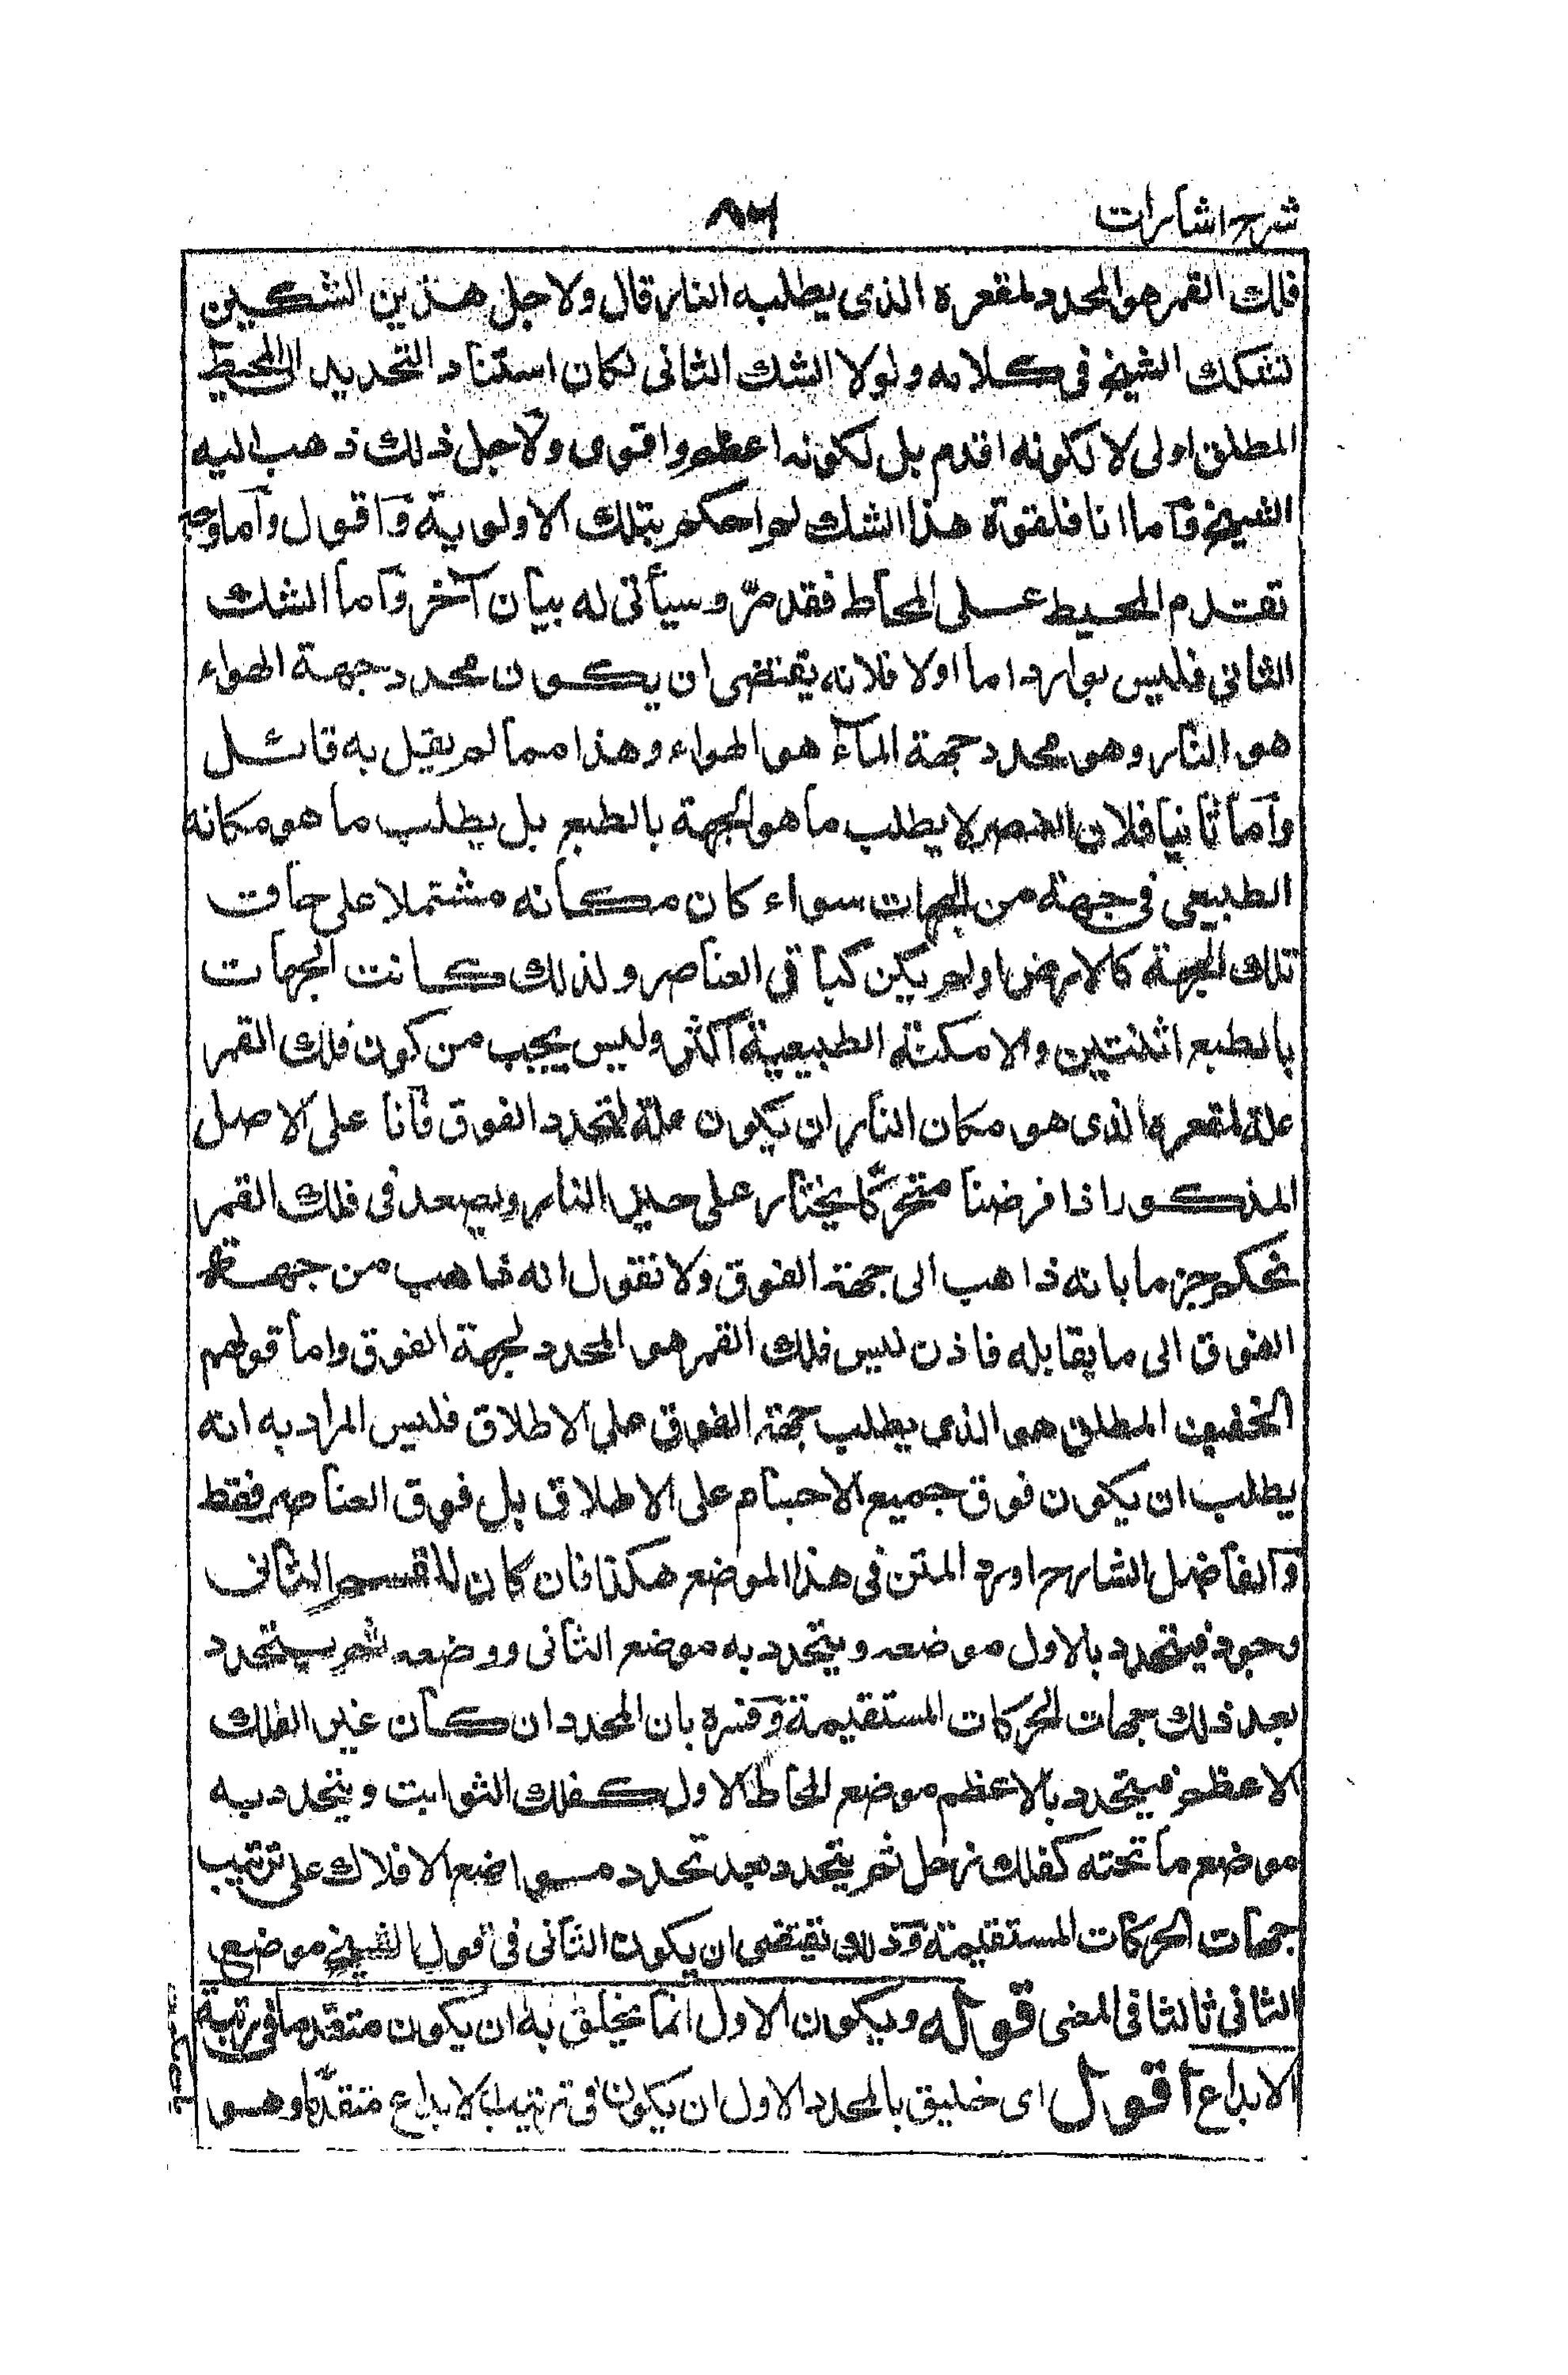 شرح اشارات
٨٦
فلك القمر هو المحدد لمقعره الذى يطلبه النار قال ولاجل هذين الشكين
تشكك الشيخ فى كلامه ولولا الشك الثانى لكان استناد التحديد الى المحيط
المطلق اولى لا لكونه اقدم بل لكونه اعظم واقوى ولاجل ذلك ذهب اليه
الشيخ وآما انا فلقوة هذا الشك لم احكم بتلك الاولوية وآقول وآما وجه
تقدم المحيط على المحاط فقد مرّ وسيأتى له بيان آخر وآما الشك
الثانى فليس بوارد اما اولا فلانه يقتضى ان يكون محدد جهة الهواء
هو النار وهو محدد جهة المآء هو الهواء وهذا مما لم يقل به قائل
وآما ثانيا فلان العنصر لا يطلب ما هو الجهة بالطبع بل يطلب ما هو مكانه
الطبيعى فى جهة من الجهات سواء كان مكانه مشتملا على حاقت
تلك الجهة كالارض او لم يكن كباقى العناصر ولذلك كانت الجهات
بالطبع اثنتين والامكنة الطبيعية اكثر وليس يجب من كون فلك القمر
علة لمقعره الذى هو مكان النار ان يكون علة لتحدد الفوق فآنا على الاصل
المذكور اذا فرضنا متحركّا يختار على حيز النار ويصعد فى فلك القمر
نحكم جزما بانه ذاهب الى جهة الفوق ولا نقول انه ذاهب من جهة
الفوق الى ما يقابله فاذن ليس فلك القمر هو المحدد لجهة الفوق واما قولهم
الخفيف المطلق هو الذى يطلب جهة الفوق على الاطلاق فليس المراد به انه
يطلب ان يكون فوق جميع الاجسام على الاطلاق بل فوق العناصر فقط
وآلفاضل الشارح اورد المتن فى هذا الموضع هكذا فان كان للقسم الثانى
وجود فيتحدد بالاول موضعه ويتحدد به موضع الثانى ووضعه ثم يتحدد
بعد ذلك جهات الحركات المستقيمة وفسّره بان المحدد ان كان غير الفلك
الاعظم فيتحدد بالاعظم موضع المحاط الاول كفلك الثوابت ويتحدد به
موضع ما تحته كفلك زحل ثم يتحدد بعد تحدد مواضع الافلاك على ترتيب
جهات الحركات المستقيمة وذلك يقتضى ان يكون الثانى فى قول الشيخ موضع
الثانى ثالثا فى المعنى قوله ويكون الاول انما يخلق به ان يكون متقدما فى رتبة
الابداع آقول اى خليق بالمحدد الاول ان يكون فى ترتيب الابداع متقدّما وهو